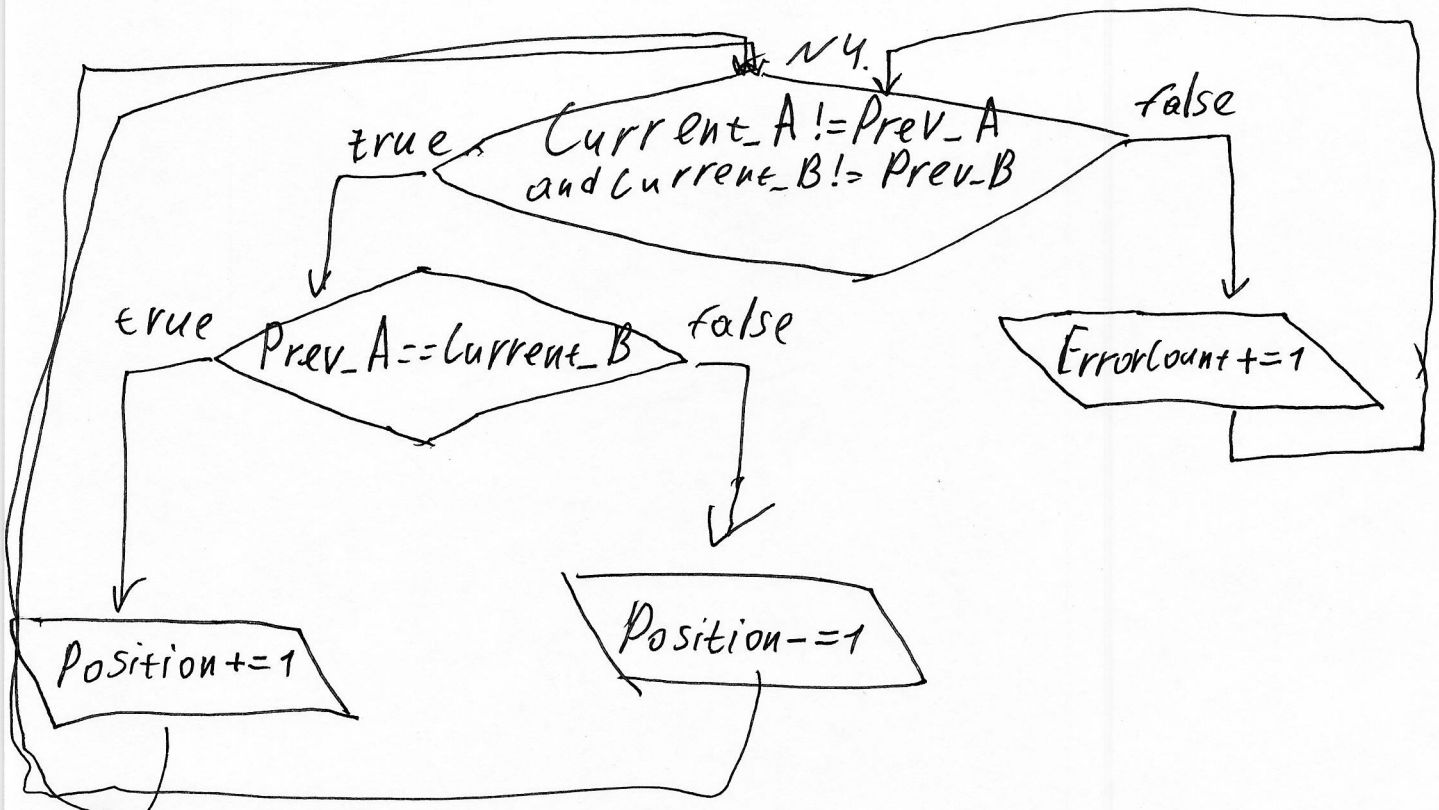 N4.
Current_A!=Prev_A
and Current_B!= Prev_B
true
false
true
Prev_A==Current_B
false
ErrorCount+=1
Position+=1
Position-=1